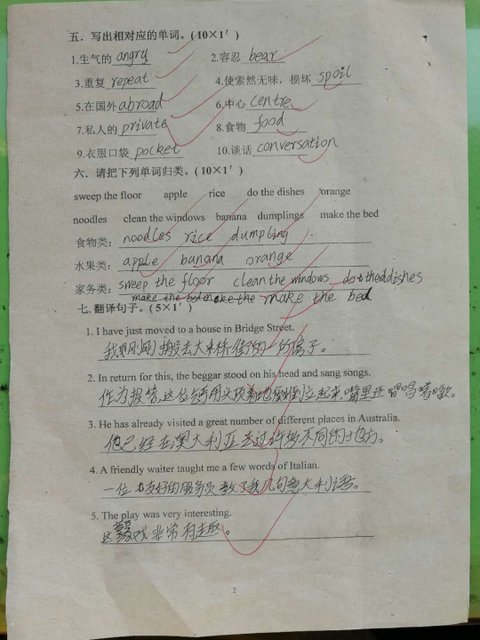 五．写出相对应的单词。(10×1′)
1.生气的 angry 2.容忍 bear
3.重复 repeat 4.使索然无味，损坏 spoil
5.在国外 abroad 6.中心 centre
7.私人的 private 8.食物 food
9.衣服口袋 pocket 10.谈话 conversation
六．请把下列单词归类。(10×1′)
sweep the floor apple rice do the dishes orange
noodles clean the windows banana dumplings make the bed
食物类： noodles rice dumpling
水果类： apple banana orange
家务类： sweep the floor clean the windows do the dishes
make the bed make the make the bed
七．翻译句子．(5×1′)
1. I have just moved to a house in Bridge Street.
我刚刚搬去大桥街的一所房子。
2. In return for this, the beggar stood on his head and sang songs.
作为报答，这位用头顶着地倒立起来，嘴里还唱
3. He has already visited a great number of different places in Australia.
他已经在澳大利亚去过许多不同的地方。
4. A friendly waiter taught me a few words of Italian.
一位友好的服务员教了我几句意大利语。
5. The play was very interesting.
这戏非常有趣。
2